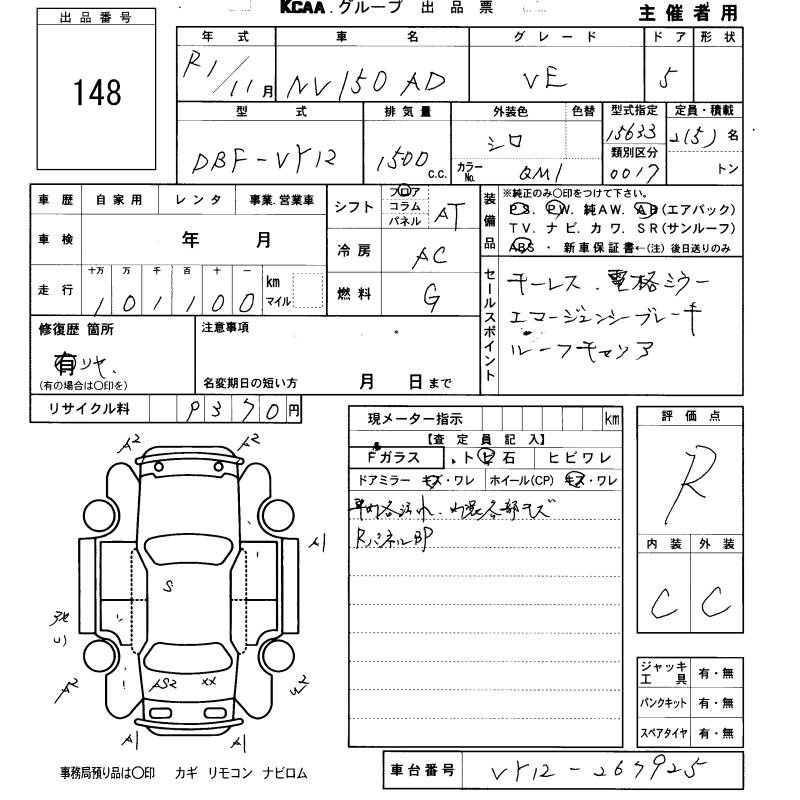 KCAA.グループ 出品票 主催者用
出品番号
148
年式 車名 グレード ドア 形状
R1/11月 NV150 AD VE 5
型式 排気量 外装色 色替 型式指定 定員・積載
DBF-VY12 1500 c.c. シロ 15633 2(5)名
カラーNo. QM1 類別区分 0017 トン
車歴 自家用 レンタ 事業.営業車
車検 年 月
走行 十万 万 千 百 十 一 km マイル
101100
シフト フロア コラム パネル AT
冷房 AC
燃料 G
装備品
※純正のみ○印をつけて下さい。
PS. PW. 純AW. AB(エアバック)
TV. ナビ. カワ. SR(サンルーフ)
ABS・ 新車保証書←(注)後日送りのみ
セールスポイント
キーレス.電格ミラー
エマージェンシーブレーキ
ルーフキャリア
修復歴 箇所
有 リヤ.
(有の場合は○印を)
注意事項
名変期日の短い方 月 日まで
リサイクル料 9370円
現メーター指示 km
【査定員記入】
Fガラス . トビ石 ヒビワレ
ドアミラー キズ・ワレ ホイール(CP) キズ・ワレ
車内各汚れ.内張各部キズ
RパネルBP
評価点
R
内装 外装
C C
ジャッキ工具 有・無
パンクキット 有・無
スペアタイヤ 有・無
A2 A2
A1
S
A2 AS2 XX W2
A1 A1
事務局預り品は○印 カギ リモコン ナビロム
車台番号 VY12-267925